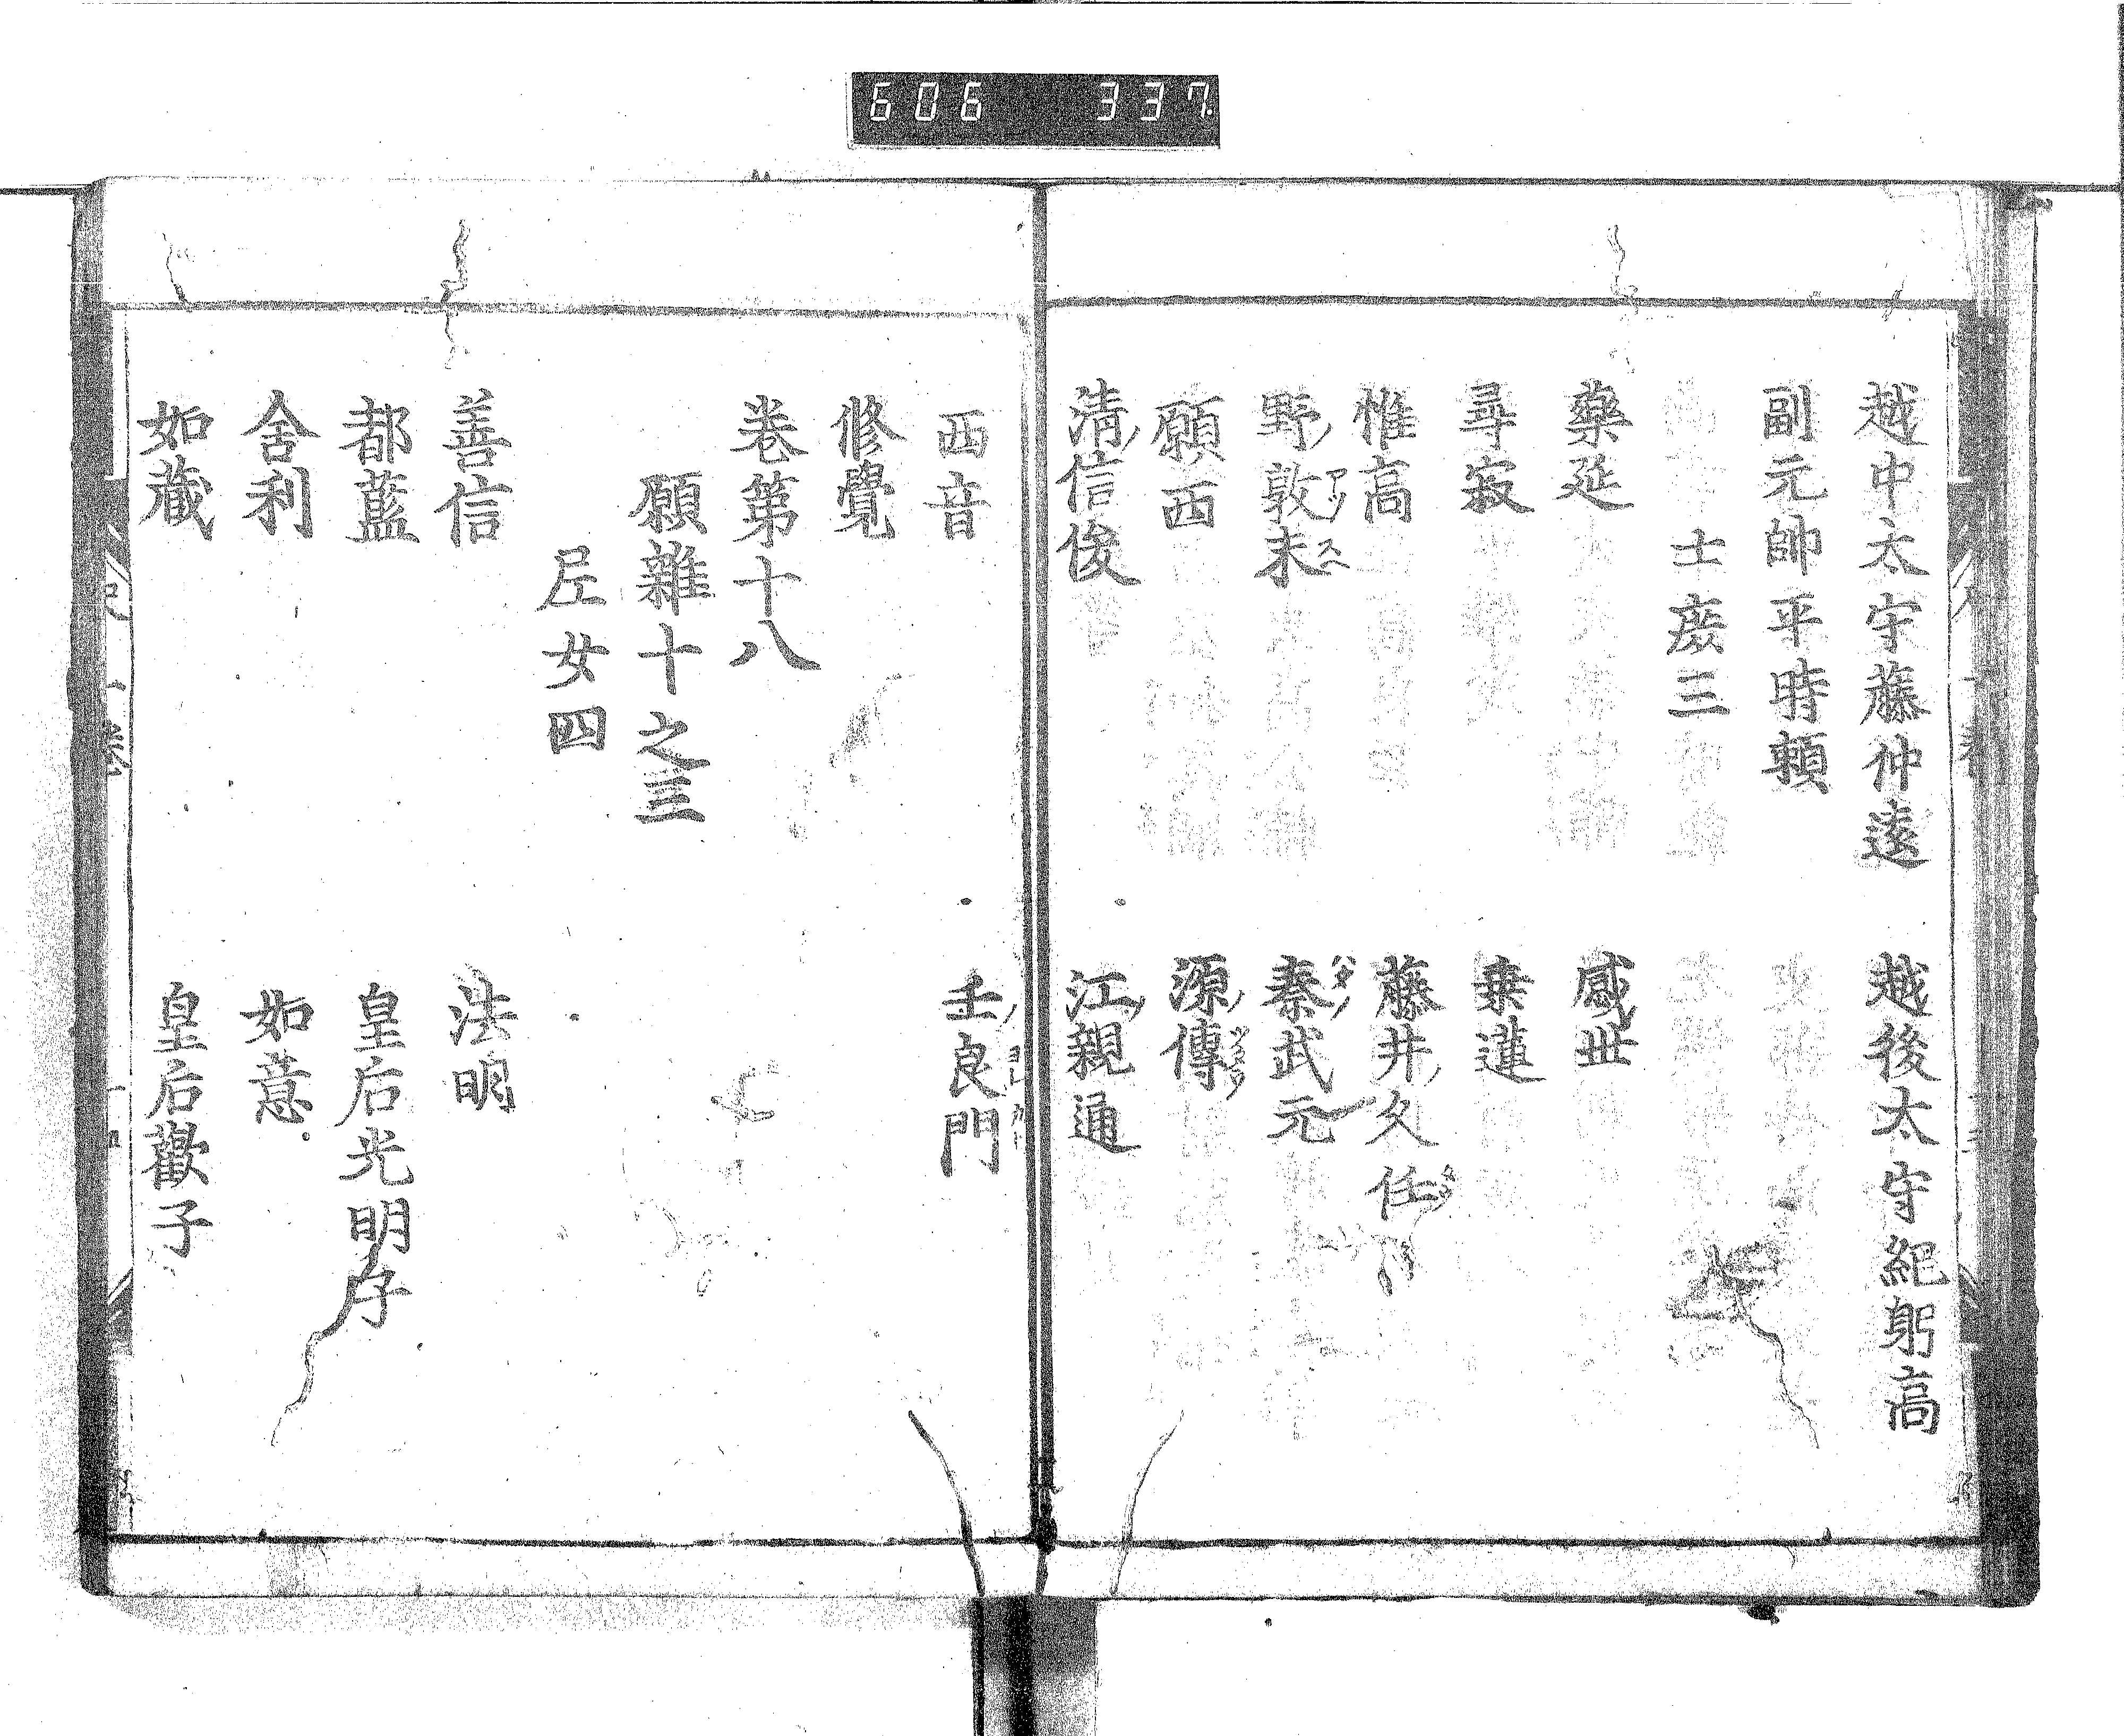 606 337
越中太守藤仲遠 越後太守紀躬高
副元帥平時頼
士庶三
藥延 感世
尋寂 乗蓮
惟高 藤井久任
野敦末 秦武元
願西 源傳
清信俊 江親通
西音 壬良門
修覺
巻第十八
願雜十之三
尼女四
善信 法明
都藍 皇后光明子
舍利 如意
如藏 皇后歡子